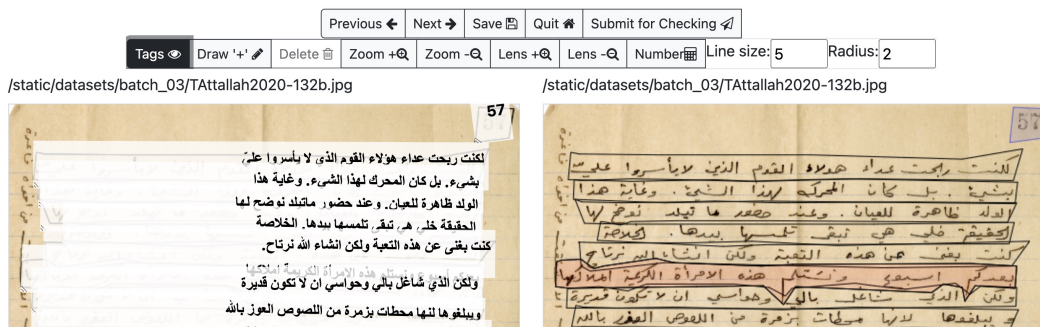 Previous Next Save Quit Submit for Checking
Tags Draw '+' Delete Zoom + Zoom - Lens + Lens - Number Line size: 5 Radius: 2
/static/datasets/batch_03/TAttallah2020-132b.jpg
57
لكنت ربحت عداء هؤلاء القوم الذي لا يأسروا عليّ
بشيء. بل كان المحرك لهذا الشيء. وغاية هذا
الولد ظاهرة للعيان. وعند حضور ماتيلد نوضح لها
الحقيقة خلي هي تبقى تلمسها بيدها. الخلاصة
كنت بغنى عن هذه التعبة ولكن انشاء الله نرتاح.
ونستلم هذه الامرأة الكريمة املاكها
ولكن الذي شاغل بالي وحواسي ان لا تكون قديرة
ويبلغوها لنها محطات بزمرة من اللصوص العوز بالله
/static/datasets/batch_03/TAttallah2020-132b.jpg
57
لكنت ربحت عداء هدلاء القوم الذي لايأسروا عليّ
بشيء. بل كان المحرك لهذا الشيء. وغاية هذا
الولد ظاهرة للعيان. وعند حضور ماتيلد نوضح لها
الحقيقة خلي هي تبقى تلمسها بيدها. الخلاصة
كنت بغنى عن هذه التعبة ولكن انشاء الله نرتاح
اسبوع ونستلم هذه الامرأة الكريمة املاكها
ولكن الذي شاغل بالي وحواسي ان لا تكون قديرة
و يبلغوها لانها محطات بزمرة من اللصوص العوز بالله